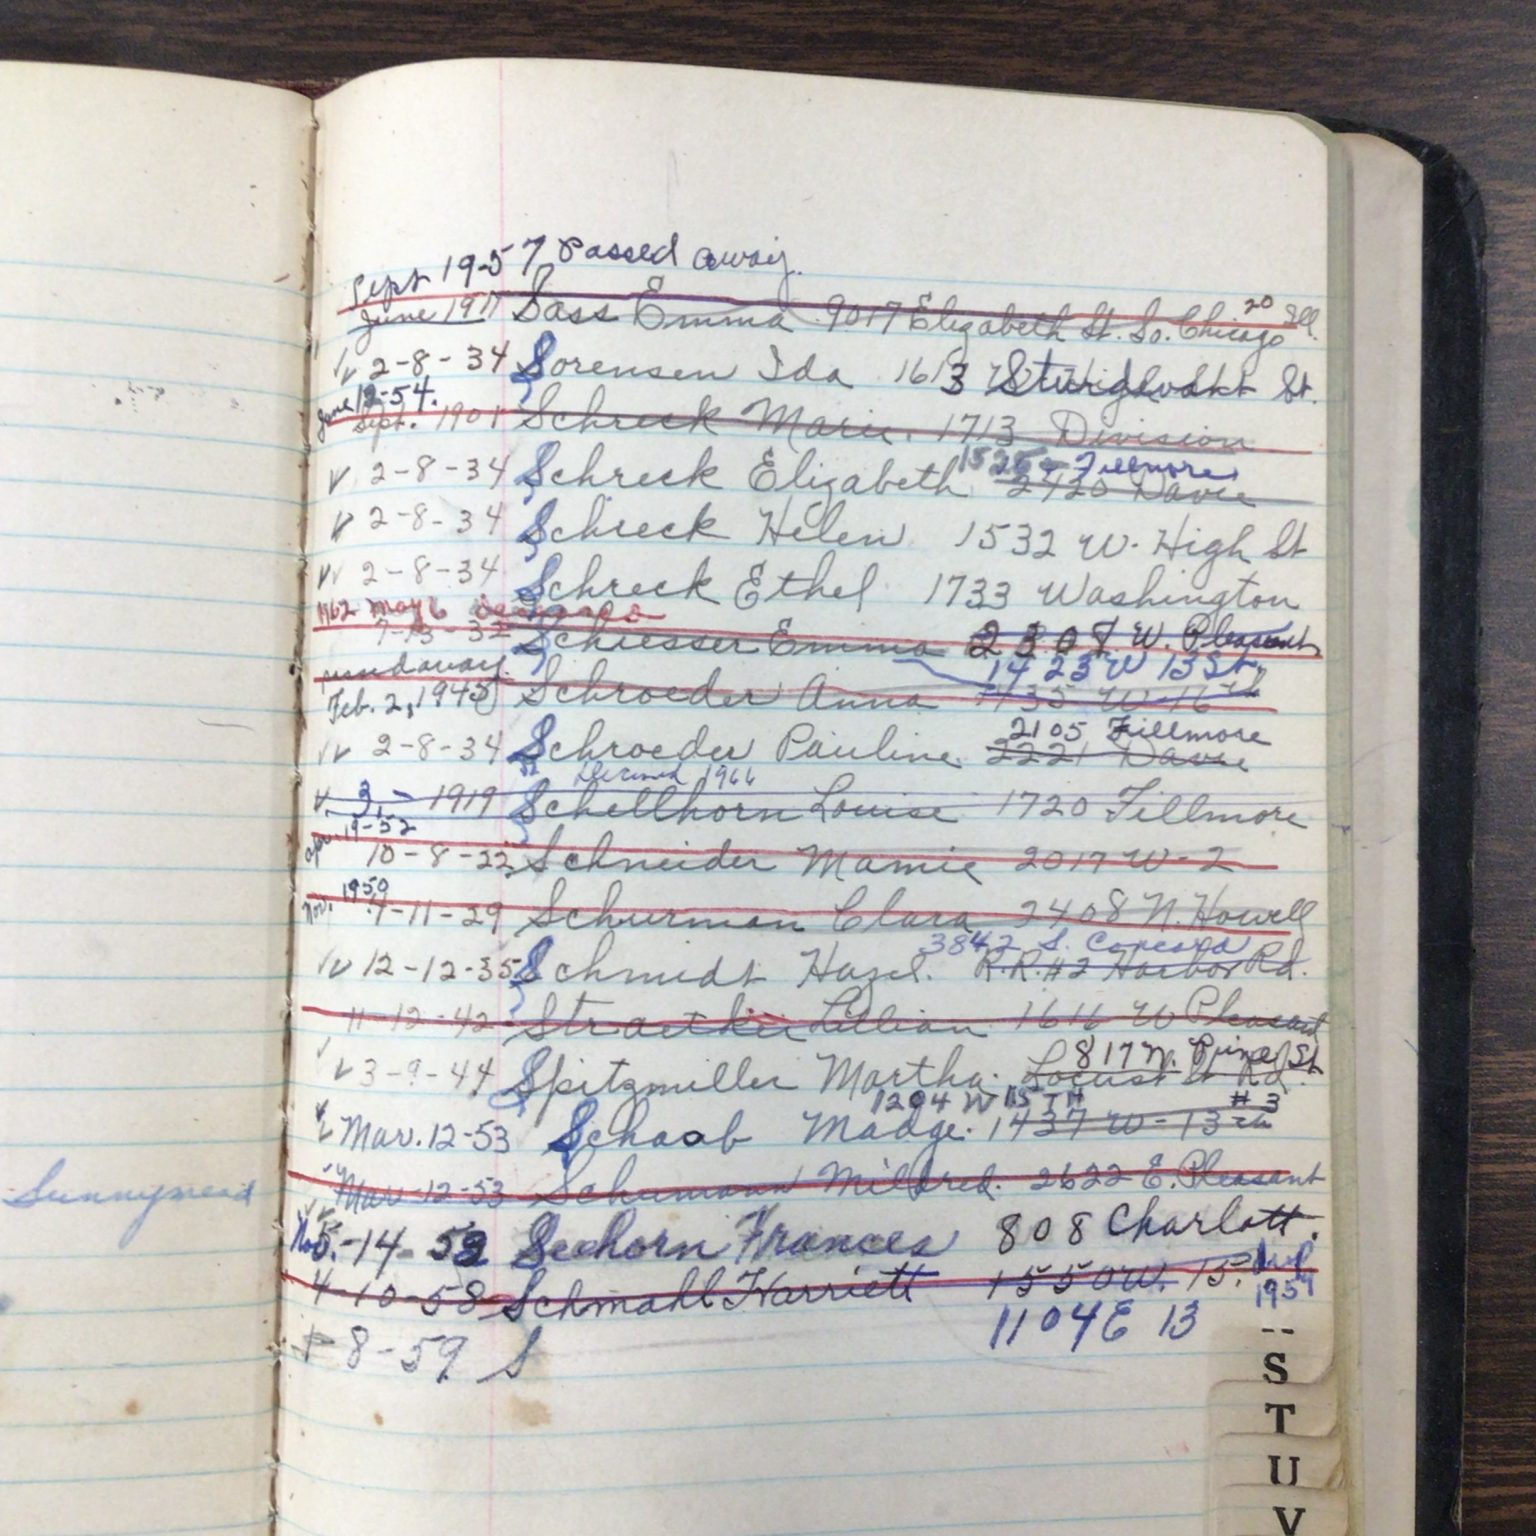 Sept 19-57 Passed away.
June 1917 Sass Emma 9017 Elizabeth St. So. Chicago 20 Ill.
vv 2-8-34 Sorensen Ida 1613 St.
June 12-54.
Sept. 1901 Schreck Marie. 1713 Division
v 2-8-34 Schreck Elizabeth 2420 Davie
Fillmore
v 2-8-34 Schreck Helen 1532 W. High St
vv 2-8-34 Schreck Ethel 1733 Washington
1962 May 6
7-13-32 Schiesser Emma 2308 W. Pleasant
passed away
1423 W 13 St.
Feb. 2, 1945 Schroeder Anna 1435 W-16
2105 Fillmore
vv 2-8-34 Schroeder Pauline 2221 Davie
Deceased 1966
v. 3, - 1919 Schellhorn Louise 1720 Fillmore
apr. 19-52
10-8-22 Schneider Mamie 2017 W-2
Nov. 1950
4-11-29 Schurman Clara 2408 N. Howell
3842 S. Concord
vv 12-12-35 Schmidt Hazel. R.R.#2 Harbor Rd.
11-12-42 Straetker Lillian 1616 W Pleasant
817 N. Pine St
v 3-9-44 Spitzmiller Martha. Locust St Rd.
1204 W 15TH #3
Mar. 12-53 Schaab Madge. 1437 W-13th
Mar-12-53 Schumann Mildred. 2622 E. Pleasant
Sunnymead
Nov 5.-14-53 Seehorn Frances 808 Charlott.
4-10-58 Schmahl Harriett 1550 W. 15.
1959
1104 E 13
8-59 S
S
T
U
V